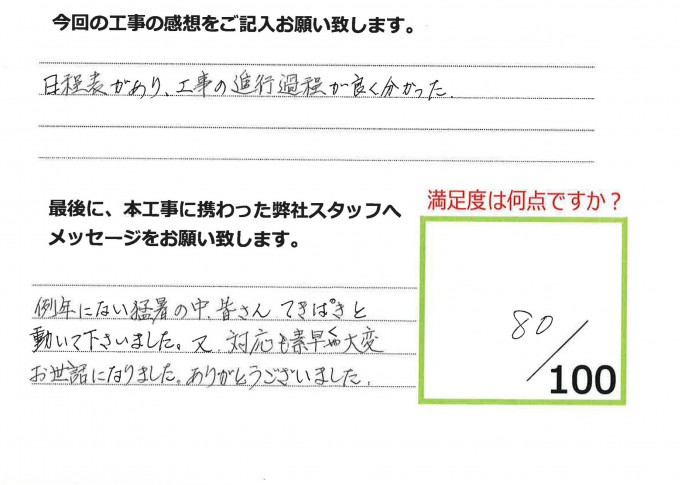 今回の工事の感想をご記入お願い致します。
日程表があり、工事の進行過程が良く分かった.
最後に、本工事に携わった弊社スタッフへ
メッセージをお願い致します。
満足度は何点ですか？
例年にない猛暑の中、皆さん てきぱきと
動いて下さいました。又、対応も素早く大変
お世話になりました。ありがとうございました.
80/100